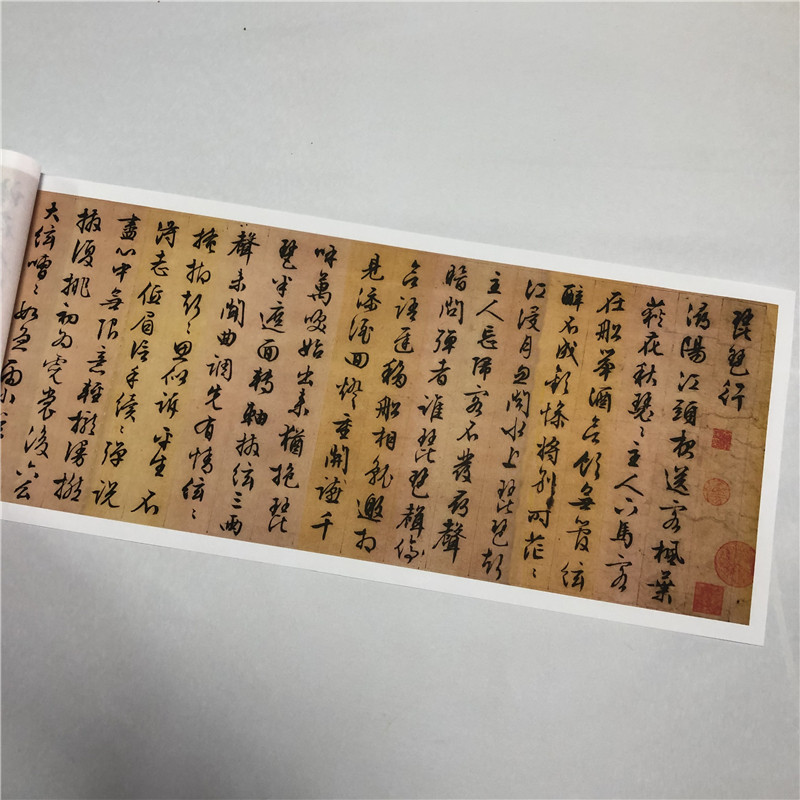 琵琶行
潯陽江頭夜送客楓葉
荻花秋瑟〻主人下馬客
在船舉酒欲飲無管絃
醉不成歡慘將別時茫〻
江浸月忽聞水上琵琶聲
主人忘歸客不發尋聲
暗問彈者誰琵琶聲停
欲語遲移船相邀相
見添酒回燈重開讌千
呼萬喚始出來猶抱琵
琶半遮面轉軸撥絃三兩
聲未聞曲調先有情絃〻
掩抑聲〻思似訴平生不
得志低眉信手續〻彈說
盡心中無限意輕攏慢撚
撥復挑初為霓裳後六么
大絃嘈〻如急雨小